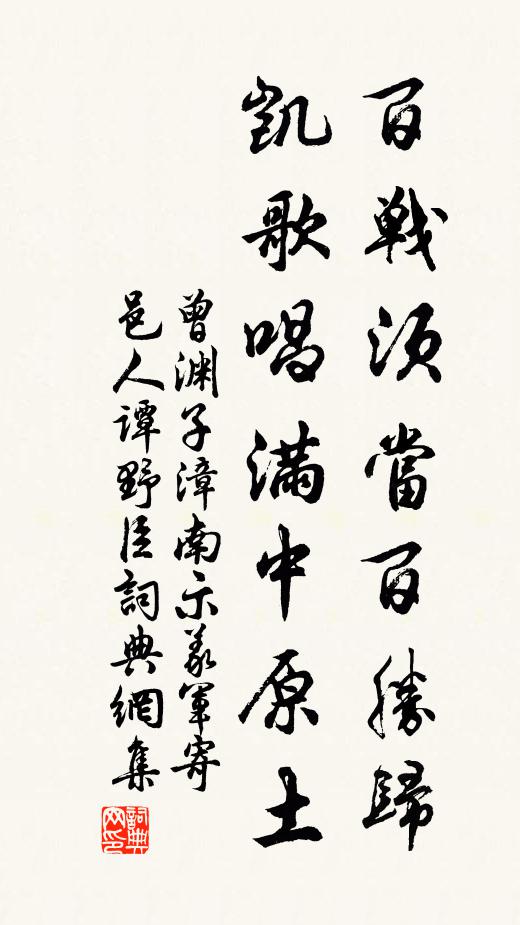 百戦須當百勝歸
凱歌唱滿中原土
曾渊子漳南示義軍寄
邑人譚野臣詞典網集
詞典网印